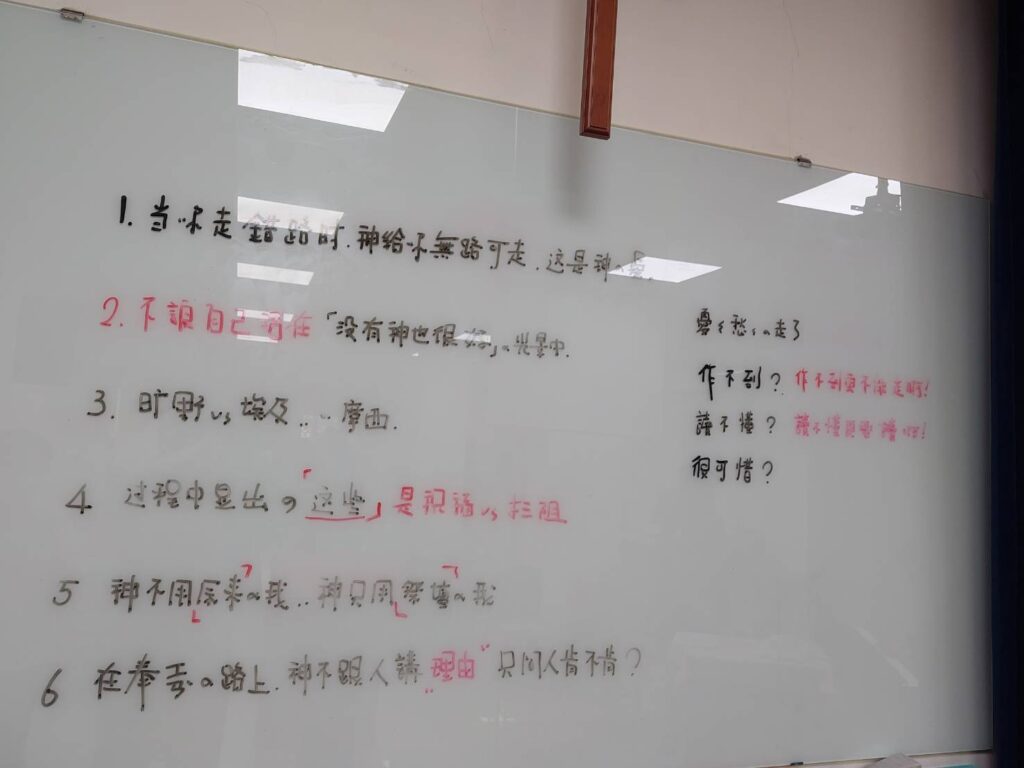 1. 当你走錯路时.神給你無路可走.这是神の愛.
2. 不讓自己可在「没有神也很好」の光景中.
3. 旷野vs埃及..摩西.
4 过程中显出の「这些」是祝福vs拦阻
5 神不用「原来」の我..神只用「祭壇」の我
6 在奉献の路上.神不跟人講"理由"只问人肯不肯?
憂々愁々の走了
作不到? 作不到更不能走啊!
讀不懂? 讀不懂更要讀啊!
很可惜?